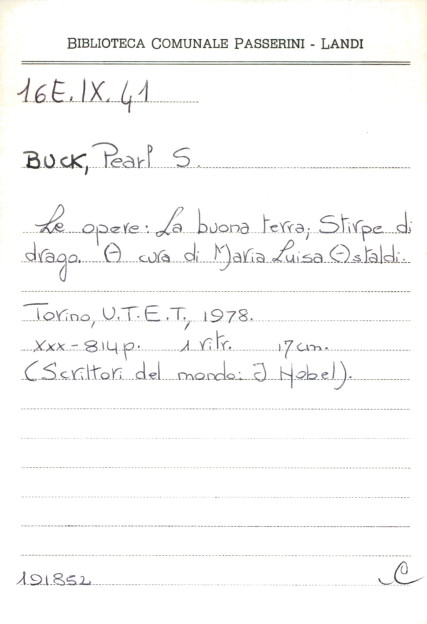 BIBLIOTECA COMUNALE PASSERINI - LANDI
16E.IX.41
BUCK, Pearl S.
Le opere: La buona terra; Stirpe di
drago. A cura di Maria Luisa Astaldi.
Torino, U.T.E.T., 1978.
XXX-814p. 1 ritr. 17cm.
(Scrittori del mondo: I Nobel).
191852
C